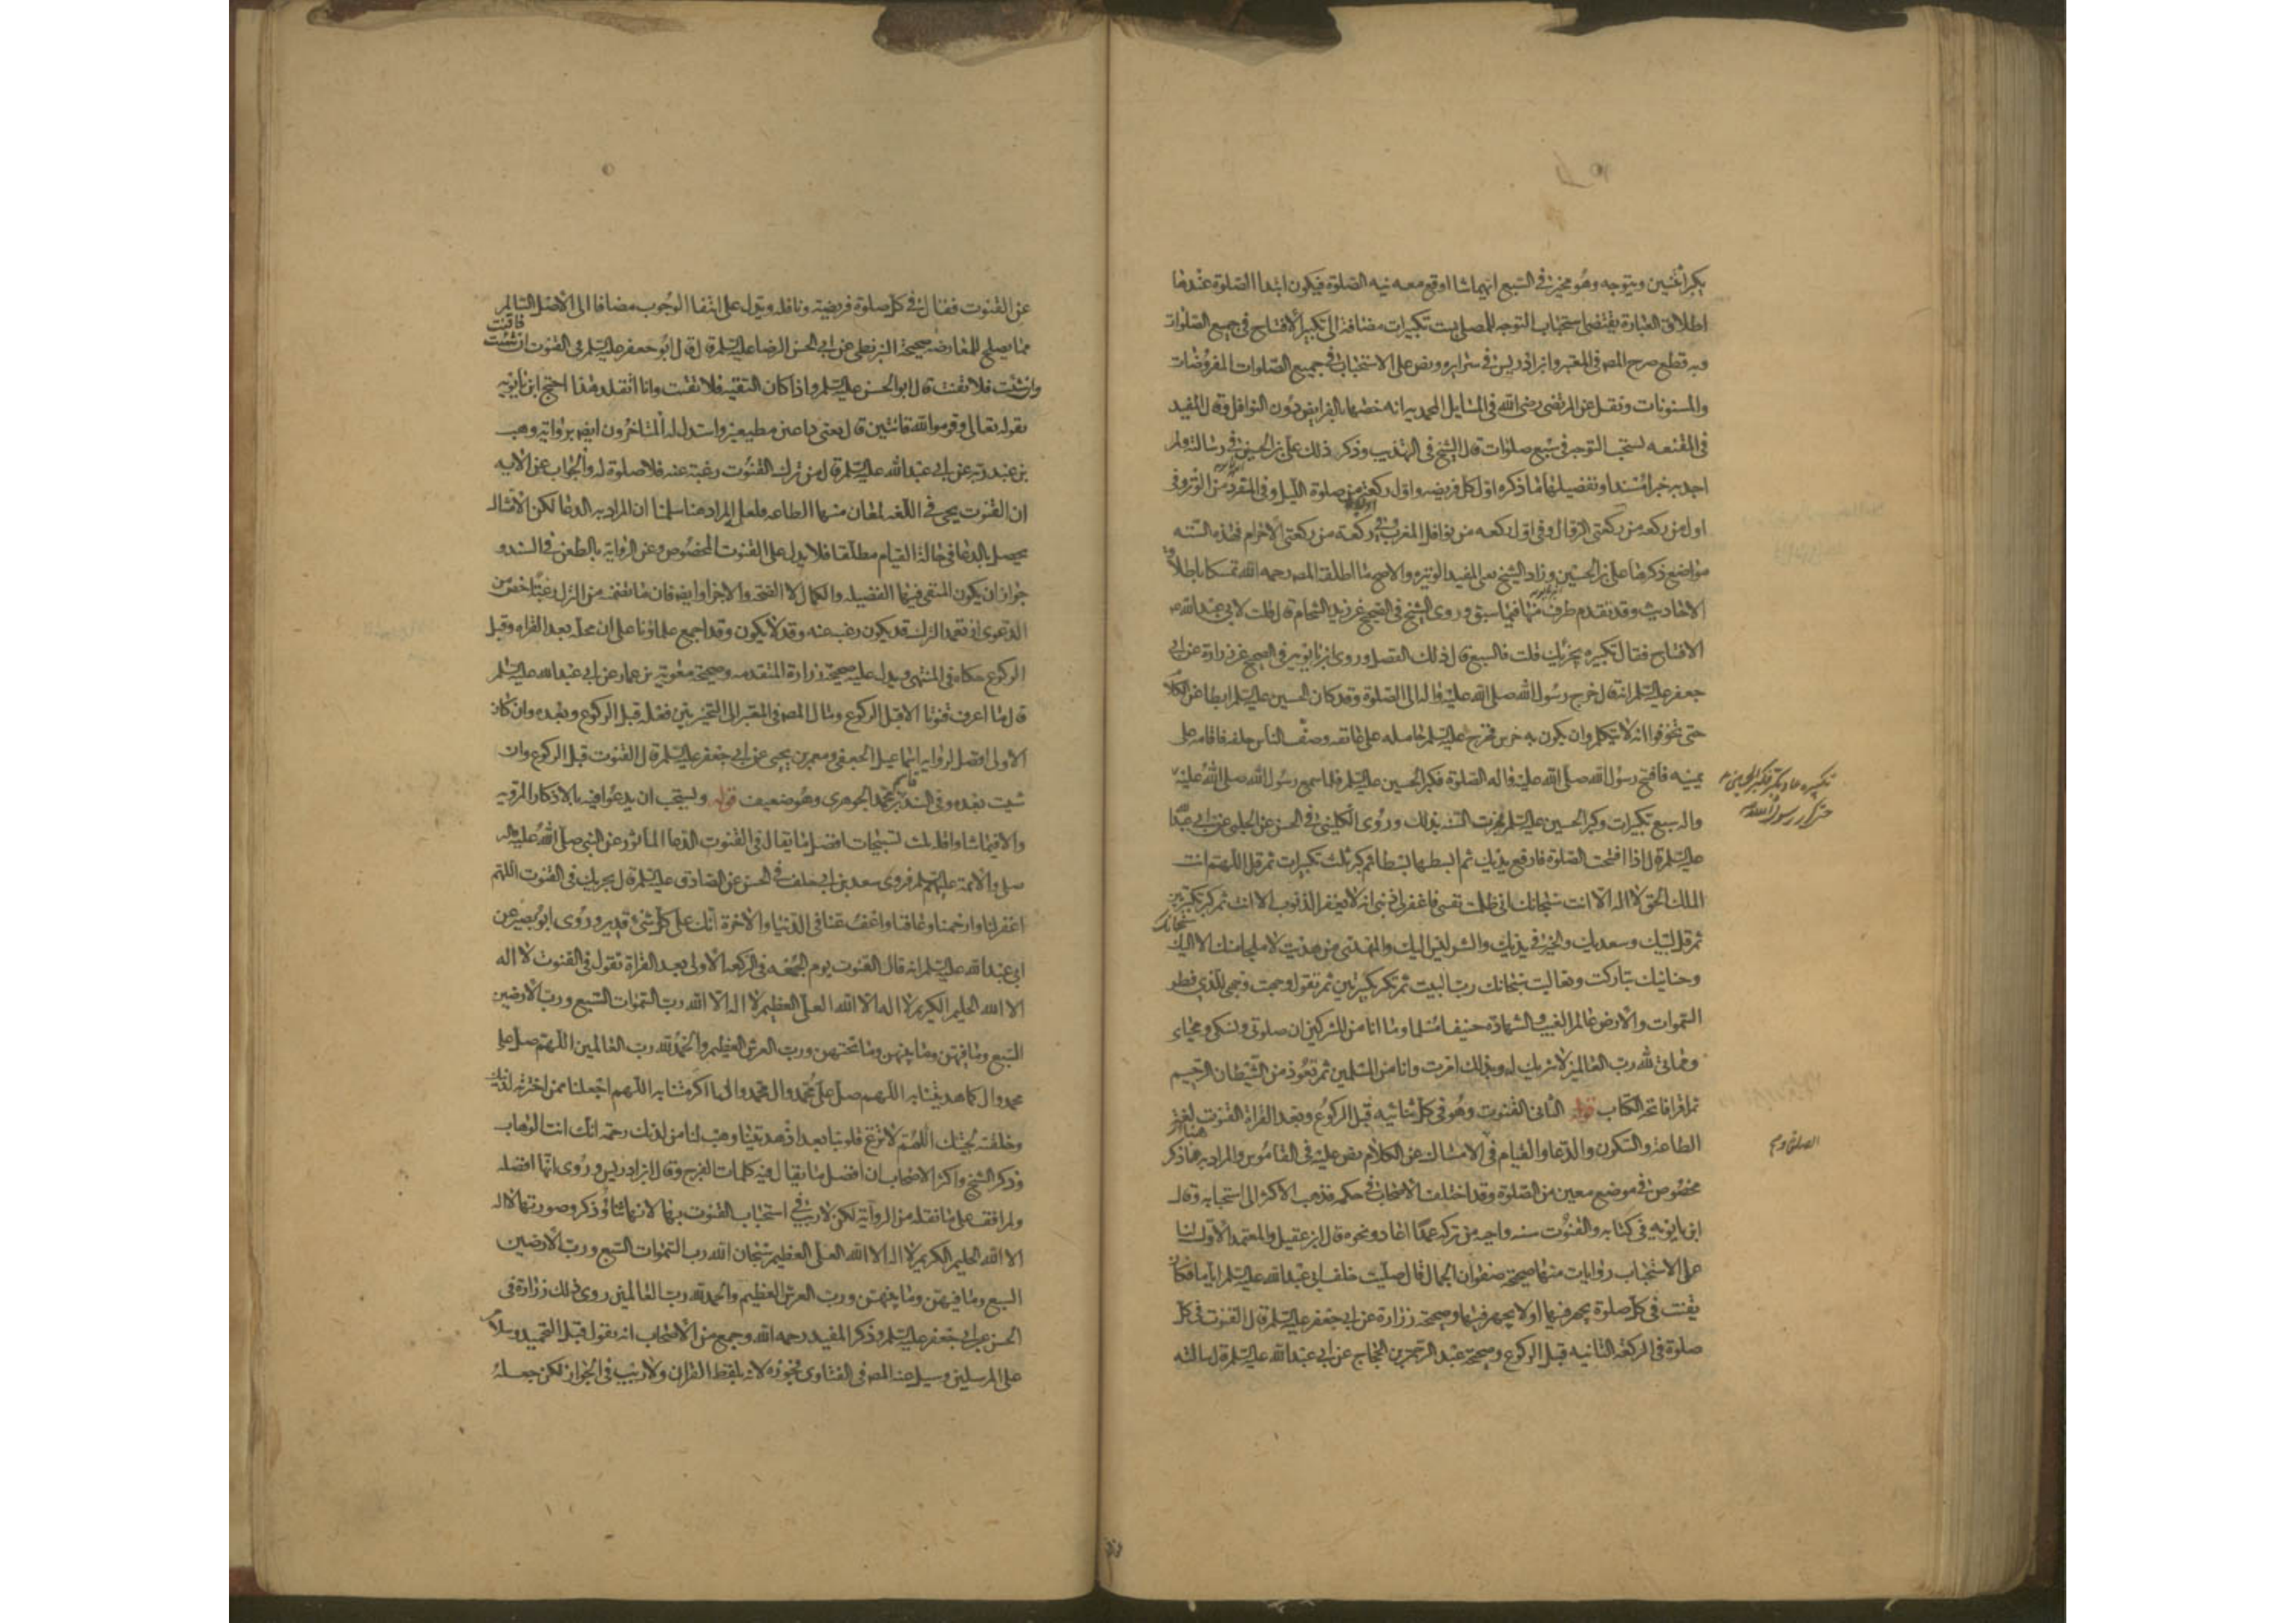 يكبر اثنتين ويتوجه وهو مخير في السبع ايهما شاء اوقع معه نيه الصلوة فيكون ابتداء الصلوة عندها
اطلاق العبارة يقتضى استحباب التوجه للمصلى بست تكبيرات مضافة الى تكبير الافتتاح في جميع الصلوات
وبه قطع صرح المص في المعتبر وابن ادريس في سرايره ونص على الاستحباب في جميع الصلوات المفروضات
والمسنونات ونقل عن المرتضى رضى الله في المسايل المحمديه انه خصها بالفرايض دون النوافل وقال المفيد
في المقنعه يستحب التوجه في سبع صلوات قال الشيخ في التهذيب وذكر ذلك على بن الحسين في رسالته ولم
اجد به خبرا مسندا وتفصيلها ما ذكره اول كل فريضه واول ركعة من صلوة الليل وفي المفرده من الوتر وفي
اول من ركعه من ركعتى الزوال وفي اول ركعه من نوافل المغرب وفي ركعة من ركعتى الاحرام فهذه الستة
مواضع ذكرها على بن الحسين وزاد الشيخ يعنى المفيد الوتيره والاصح ما اطلقه المص رحمه الله تمسكا باطلاق
الاحاديث وقد تقدم طرف منها فيما سبق وروى الشيخ في الصحيح عن زيد الشحام قال قلت لابي عبد الله
الافتتاح فقال تكبيره يجزئك قلت فالسبع قال ذلك الفضل وروى ابن بابويه في الصحيح عن زرارة عن ابي
جعفر عليه السلم انه قال خرج رسول الله صلى الله عليه واله الى الصلوة وقد كان الحسين عليه السلم ابطا عن الكلام
حتى تخوفوا انه لا يتكلم وان يكون به خرس فخرج عليه السلم حامله على عاتقه وصف الناس خلفه فاقامه على
يمينه فافتتح رسول الله صلى الله عليه واله الصلوة فكبر الحسين عليه السلم فلما سمع رسول الله صلى الله عليه
واله سبع تكبيرات وكبر الحسين عليه السلم فجرت السنه بذلك وروى الكلينى في الحسن عن الحلبى عن ابي عبد الله
عليه السلم قال اذا افتتحت الصلوة فارفع يديك ثم ابسطهما بسطا ثم كبر ثلث تكبيرات ثم قل اللهم انت
الملك الحق لا اله الا انت سبحانك انى ظلمت نفسى فاغفر لى ذنبى انه لا يغفر الذنوب الا انت ثم كبر تكبيرتين
ثم قل لبيك وسعديك والخير في يديك والشر ليس اليك والمهدى من هديت لا ملجا منك الا اليك سبحانك
وحنانيك تباركت وتعاليت سبحانك رب البيت ثم تكبر تكبيرتين ثم تقول وجهت وجهى للذي فطر
السموات والارض عالم الغيب والشهادة حنيفا مسلما وما انا من المشركين ان صلوتى ونسكى ومحياى
ومماتى لله رب العالمين لا شريك له وبذلك امرت وانا من المسلمين ثم تعوذ من الشيطان الرجيم
ثم اقرا فاتحه الكتاب قوله الثانى القنوت وهو في كل ثنائيه قبل الركوع وبعد القراة القنوت لغة
الطاعة والسكون والدعا والقيام في الامساك عن الكلام نص عليه في القاموس والمراد به هنا ذكر
مخصوص في موضع معين من الصلوة وقد اختلف الاصحاب في حكمه فذهب الاكثر الى استحبابه وقال
ابن بابويه في كتابه والقنوت سنه واجبه من تركه عمدا اعاد ونحوه قال ابن عقيل والمعتمد الاول لنا
على الاستحباب روايات منها صحيحة صفوان الجمال قال صليت خلف ابي عبد الله عليه السلم اياما فكان
يقنت في كل صلوة يجهر فيها او لا يجهر فيها وصحيحة زرارة عن ابي جعفر عليه السلم قال القنوت في كل
صلوة في الركعه الثانيه قبل الركوع وصحيحة عبد الرحمن بن الحجاج عن ابي عبد الله عليه السلم قال سالته
عن القنوت فقال في كل صلوة فريضة ونافله ويدل على انتفا الوجوب مضافا الى الاصل السالم
عما يصلح للمعارضه صحيحة البزنطى عن ابي الحسن الرضا عليه السلم قال قال ابو جعفر عليه السلم في القنوت ان شئت فاقنت
وان شئت فلا تقنت قال ابو الحسن عليه السلم واذا كان التقيه فلا تقنت وانا اتقلد هذا احتج ابن بابويه
بقوله تعالى وقوموا لله قانتين قال يعنى داعين مطيعين واستدل له المتاخرون ايضا برواية وهب
بن عبد ربه عن ابي عبد الله عليه السلم قال من ترك القنوت رغبة عنه فلا صلوة له والجواب عن الايه
ان القنوت يجى في اللغه لمعان منها الطاعه فلعل المراد هنا سلمنا ان المراد به الدعا لكن الامتثال
يحصل بالدعا في حالة القيام مطلقا فلا يدل على القنوت المخصوص وعن الرواية بالطعن في السند و
جواز ان يكون المنفى فيها الفضيله والكمال لا الصحة والاجزا وايضا فان ما تضمنه من الترك رغبتا اخص من
الدعوى اذ تعمد الترك قد يكون رغبه عنه وقد لا يكون وقد اجمع علماؤنا على ان محله بعد القراه وقبل
الركوع حكاه في المنتهى ويدل عليه صحيحة زرارة المتقدمه وصحيحة معوية بن عمار عن ابي عبد الله عليه السلم
قال ما اعرف قنوتا الا قبل الركوع ومال المص في المعتبر الى التخيير بين فعله قبل الركوع وبعده وان كان
الاولى افضل لرواية اسماعيل الجعفى ومعمر بن يحيى عن ابي جعفر عليه السلم قال القنوت قبل الركوع وان
شيت بعده وفي السند قاسم بن محمد الجوهرى وهو ضعيف قوله ويستحب ان يدعو فيه بالاذكار المرويه
والا فبما شا واقله ثلث تسبيحات افضل ما يقال في القنوت الدعا الماثور عن النبى صلى الله عليه واله
صل والائمة عليهم السلم فروى سعد بن ابي خلف في الحسن عن الصادق عليه السلم قال يجزيك في القنوت اللهم
اغفر لنا وارحمنا وعافنا واعف عنا في الدنيا والاخرة انك على كل شئ قدير وروى ابو بصير عن
ابي عبد الله عليه السلم انه قال القنوت يوم الجمعه في الركعه الاولى بعد القراة تقول في القنوت لا اله
الا الله الحليم الكريم لا اله الا الله العلى العظيم لا اله الا الله رب السموات السبع ورب الارضين
السبع وما فيهن وما بينهن وما تحتهن ورب العرش العظيم والحمد لله رب العالمين اللهم صل على
محمد وال كما هديتنا به اللهم صل على محمد وال محمد والى ما اكرمتنا به اللهم اجعلنا ممن اخترته لدينك
وخلقته لجنتك اللهم لا تزغ قلوبنا بعد اذ هديتنا وهب لنا من لدنك رحمة انك انت الوهاب
وذكر الشيخ واكثر الاصحاب ان افضل ما يقال فيه كلمات الفرج وقال ابن ادريس وروى انها افضله
ولم اقف على ما نقله من الرواية لكن لا ريب في استحباب القنوت بها لانها ثنا وذكر وصورتها لا اله
الا الله الحليم الكريم لا اله الا الله العلى العظيم سبحان الله رب السموات السبع ورب الارضين
السبع وما فيهن وما بينهن ورب العرش العظيم والحمد لله رب العالمين روى ذلك زرارة في
الحسن عن ابي جعفر عليه السلم وذكر المفيد رحمه الله وجمع من الاصحاب انه يقول قبل التحميد وسلام
على المرسلين وسيل عنه المص في الفتاوى فجوزه لانه بلفظ القران ولا ريب في الجواز لكن جعله